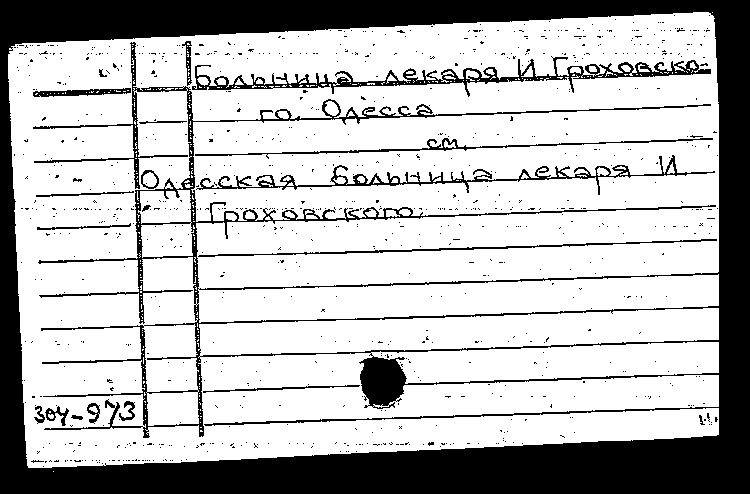 Больница лекаря И Гроховско-
го. Одесса
см.
Одесская больница лекаря И
Гроховского.
304-973